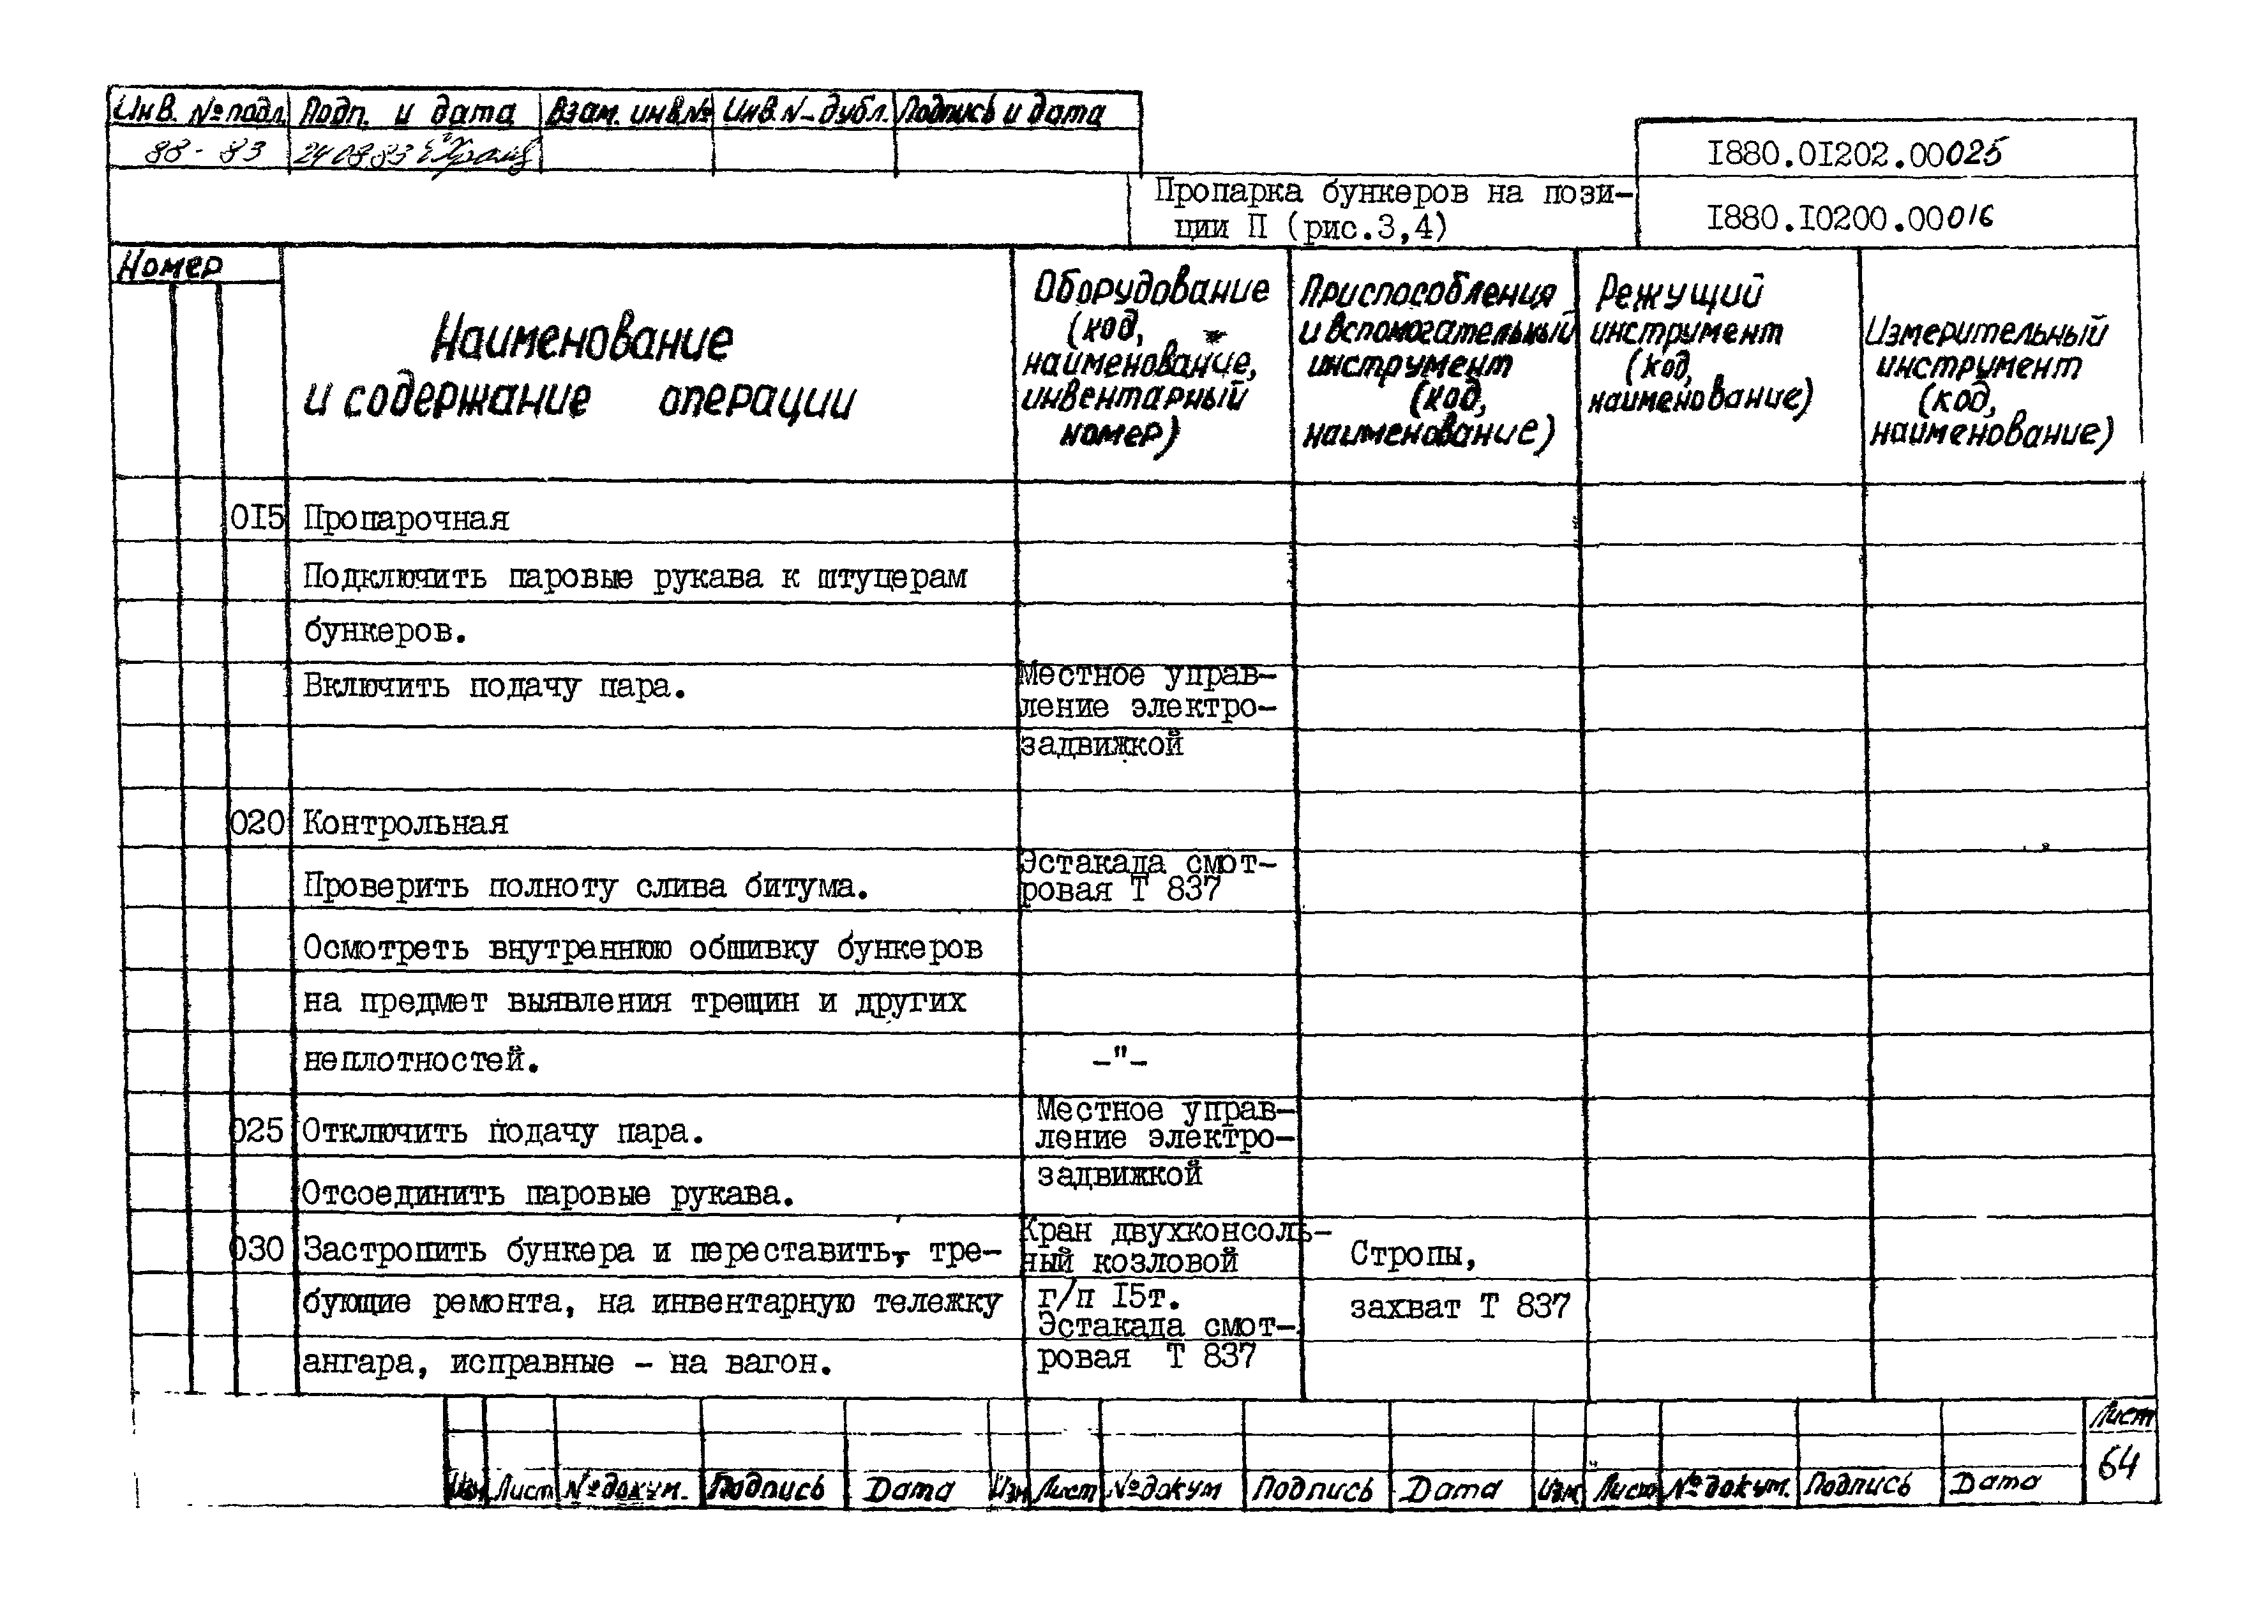 Инв. № подл. Подп. и дата Взам. инв.№ Инв.N- дубл. Подпись и дата
88-83 240883
I880.0I202.00025
Пропарка бункеров на пози-
ции П (рис.3,4)
I880.I0200.00016
Номер
Наименование
и содержание операции
Оборудование
(код,
наименование,
инвентарный
номер)
Приспособления
и вспомогательный
инструмент
(код,
наименование)
Режущий
инструмент
(код,
наименование)
Измерительный
инструмент
(код,
наименование)
0I5 Пропарочная
Подключить паровые рукава к штуцерам
бункеров.
Включить подачу пара.
Местное управ-
ление электро-
задвижкой
020 Контрольная
Проверить полноту слива битума.
Эстакада смот-
ровая Т 837
Осмотреть внутреннюю обшивку бункеров
на предмет выявления трещин и других
неплотностей. -"-
025 Отключить подачу пара.
Местное управ-
ление электро-
задвижкой
Отсоединить паровые рукава.
030 Застропить бункера и переставить, тре-
бующие ремонта, на инвентарную тележку
ангара, исправные - на вагон.
Кран двухконсоль-
ный козловой
г/п I5т.
Эстакада смот-
ровая Т 837
Стропы,
захват Т 837
Изм Лист № докум. Подпись Дата Изм Лист № докум Подпись Дата Изм Лист № докум. Подпись Дата
Лист
64